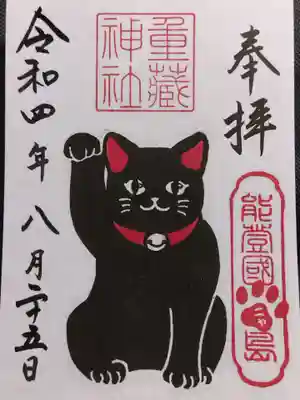 奉拝
能登國
島
重藏
神社
令和四年八月二十五日